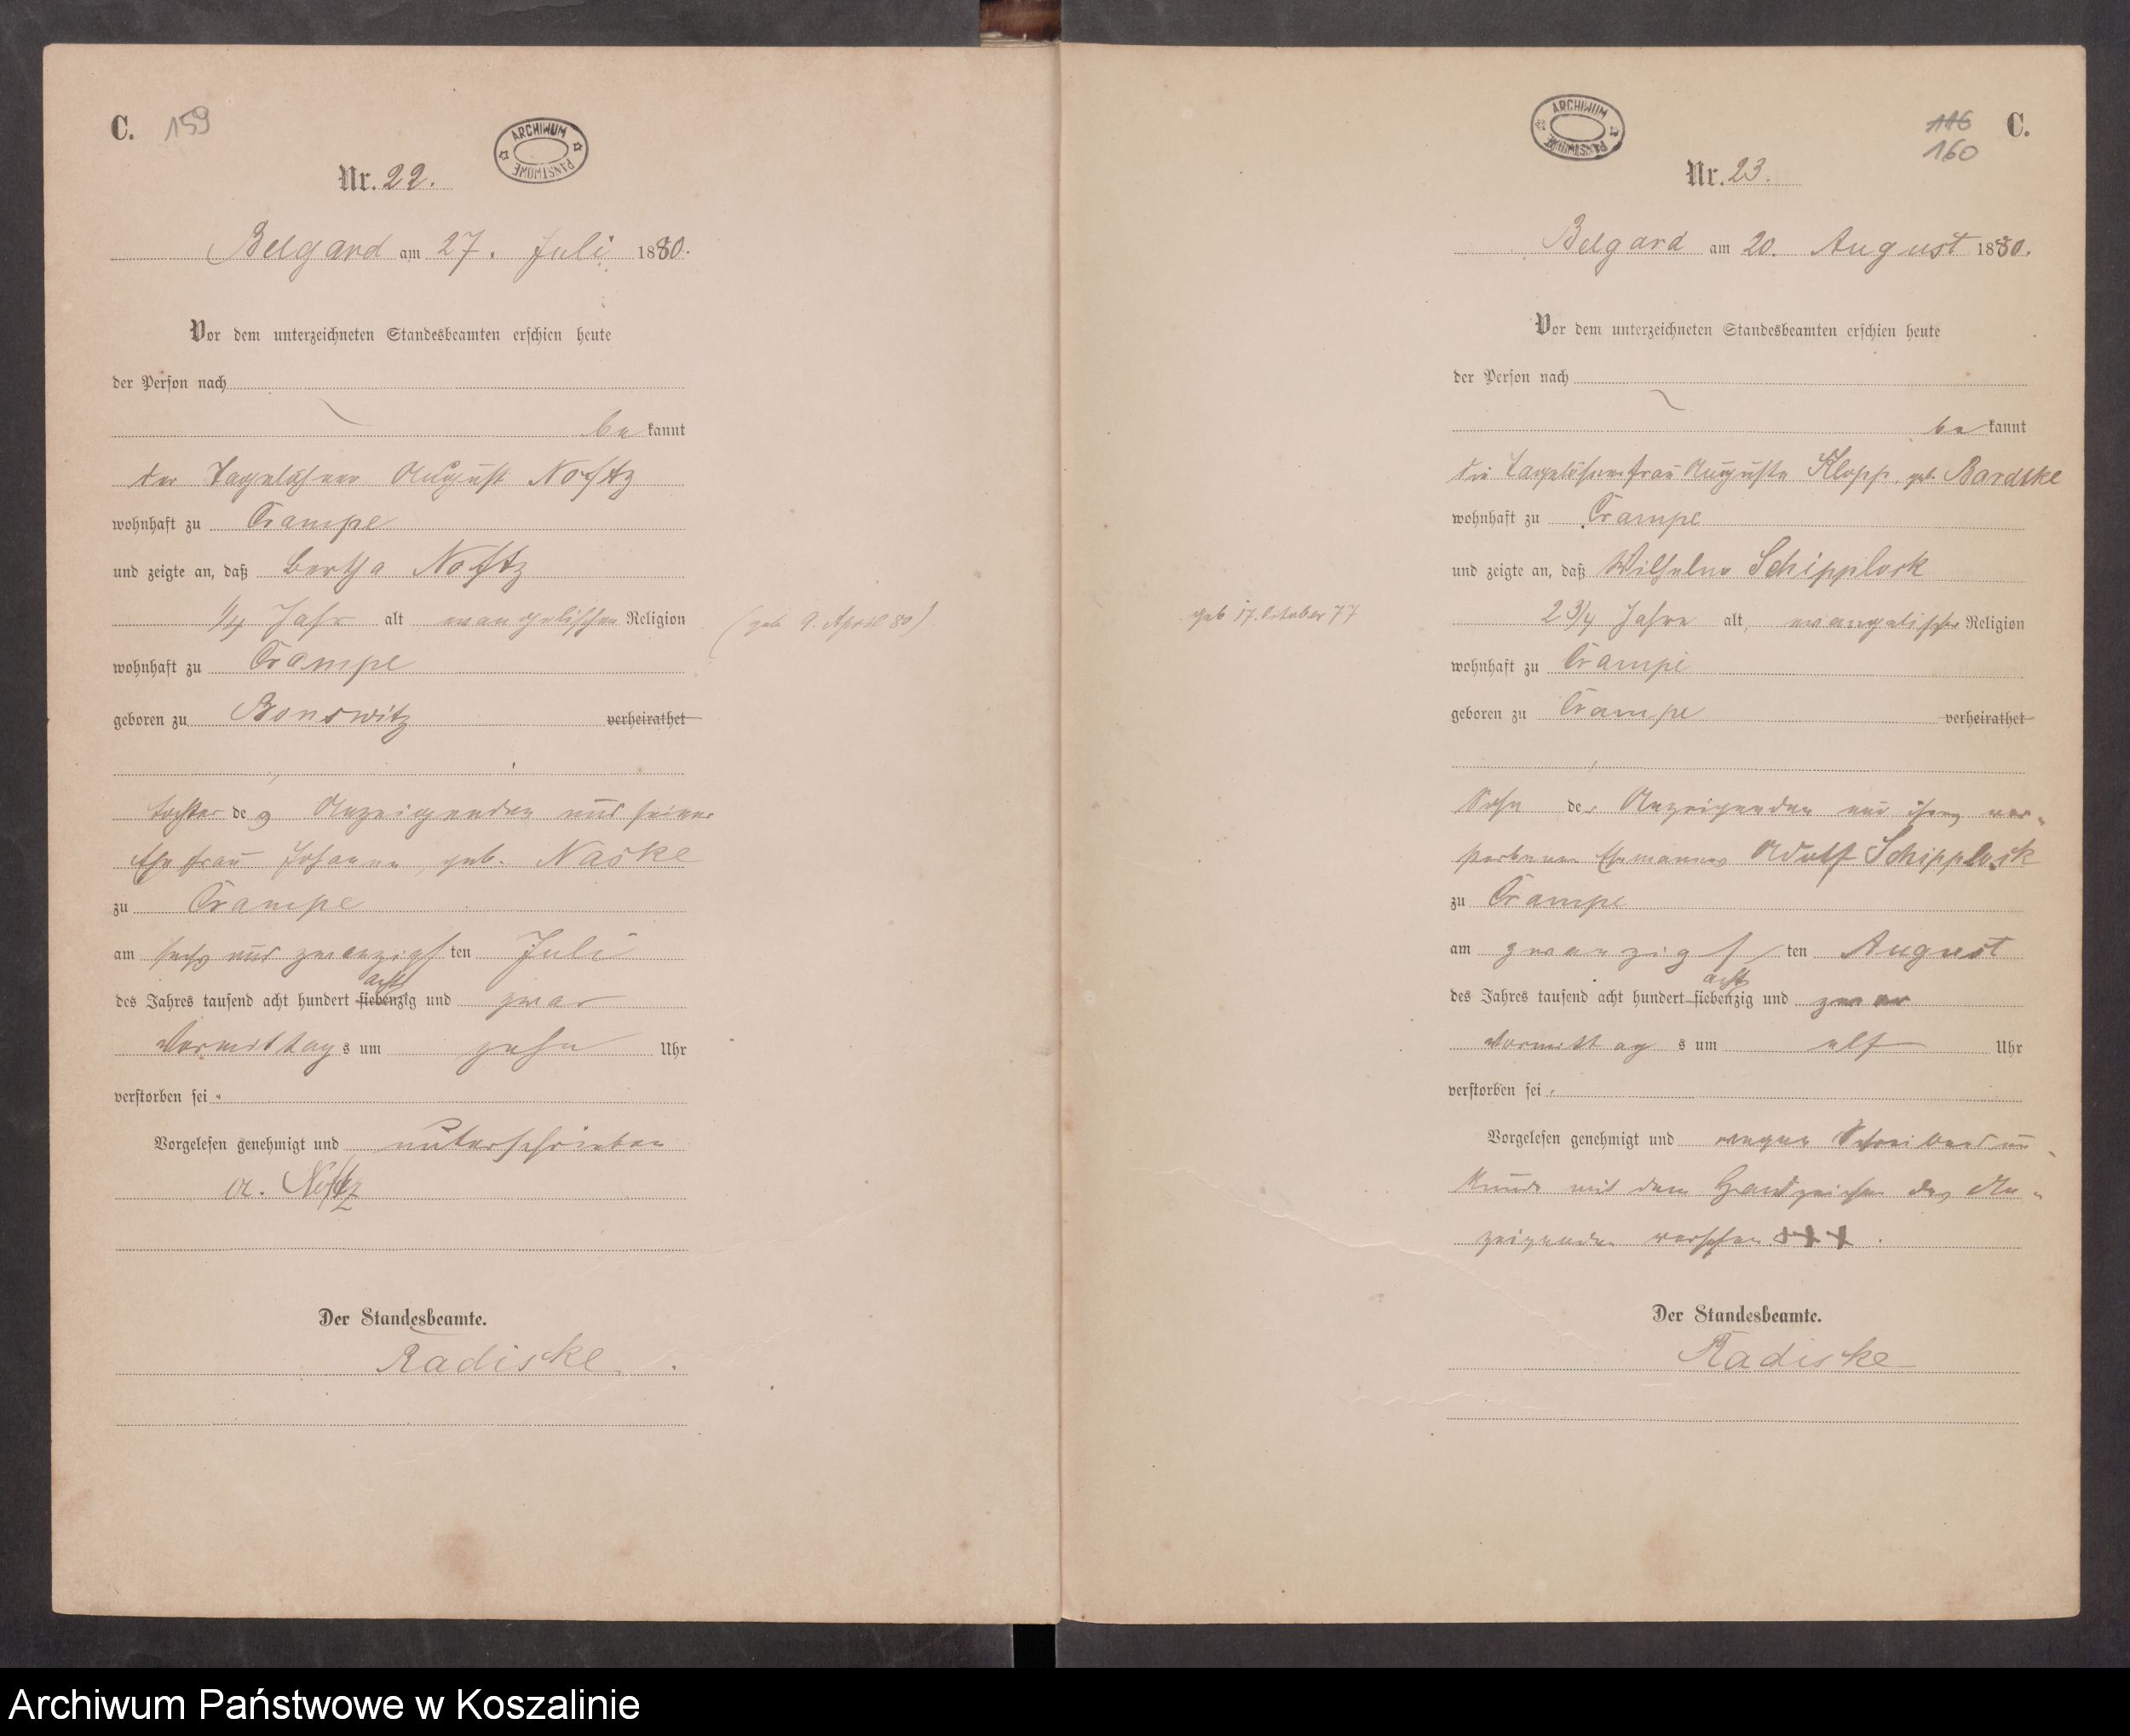 C. 159
ARCHIWUM PAŃSTWOWE
Nr. 22.
Belgard am 27. Juli 1880.
Vor dem unterzeichneten Standesbeamten erschien heute
der Person nach
be kannt
der Tagelöhner August Nofftz
wohnhaft zu Crampe
und zeigte an, daß Bertha Nofftz
1/4 Jahr alt evangelischer Religion (geb 9. April 80)
wohnhaft zu Crampe
geboren zu Bonswitz verheirathet
Tochter des Anzeigenden und seiner
Ehefrau Johanne, geb. Naske
zu Crampe
am sechs und zwanzigsten Juli
acht
des Jahres tausend acht hundert siebenzig und zwar
Vormittags um zehn Uhr
verstorben sei.
Vorgelesen genehmigt und unterschrieben
A. Nofftz
Der Standesbeamte.
Radiske
ARCHIWUM PAŃSTWOWE
116 C.
160
Nr. 23.
Belgard am 20. August 1880.
Vor dem unterzeichneten Standesbeamten erschien heute
der Person nach
be kannt
die Tagelöhnerfrau Auguste Klopp, geb. Bardske
wohnhaft zu Crampe
und zeigte an, daß Wilhelm Schipplock
geb 17. October 77 2 3/4 Jahre alt, evangelischer Religion
wohnhaft zu Crampe
geboren zu Crampe verheirathet
Sohn der Anzeigenden und ihres ver-
storbenen Ehemannes Adolf Schipplock
zu Crampe
am zwanzigsten August
acht
des Jahres tausend acht hundert siebenzig und zwar
Vormittags um elf Uhr
verstorben sei.
Vorgelesen genehmigt und wegen Schreibens un-
kunde mit dem Handzeichen des An-
zeigenden versehen +++.
Der Standesbeamte.
Radiske
Archiwum Państwowe w Koszalinie